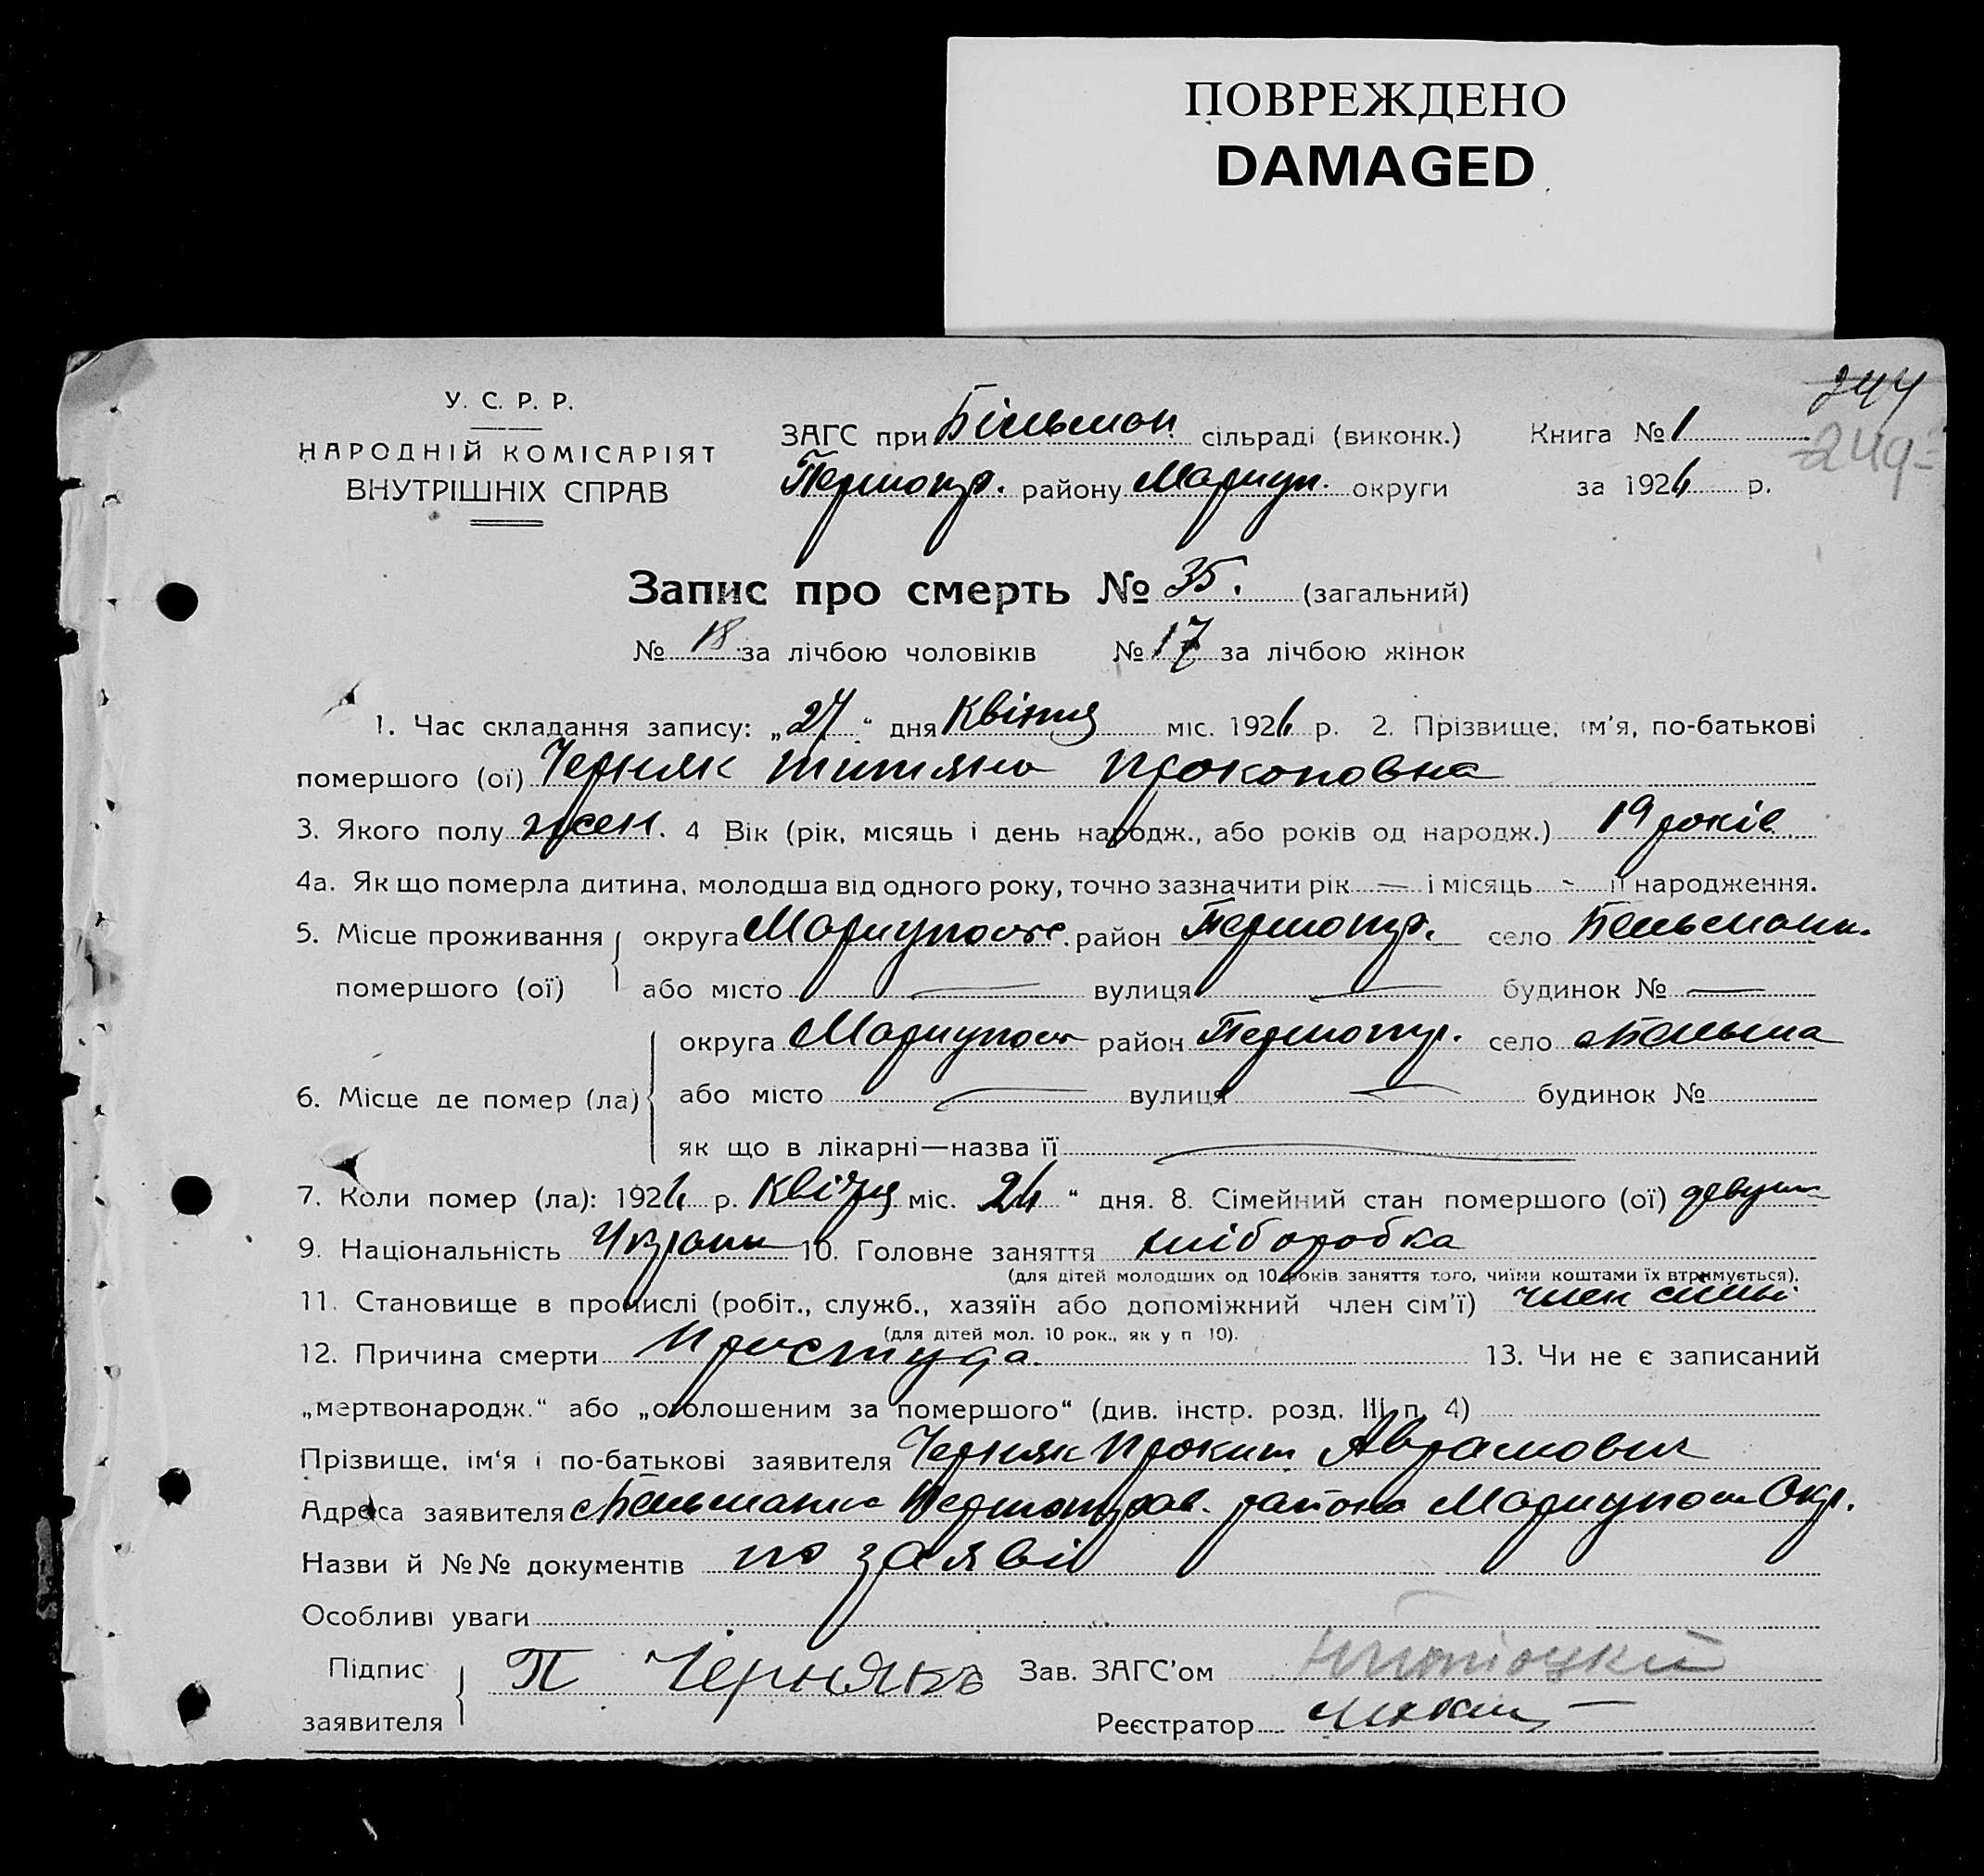 ПОВРЕЖДЕНО
DAMAGED
244
249
У. С. Р. Р.
НАРОДНІЙ КОМІСАРІЯТ
ВНУТРІШНІХ СПРАВ
ЗАГС при Більман. сільраді (виконк.) Книга № 1
Першотр. району Мариуп. округи за 1926 р.
Запис про смерть № 35. (загальний)
№ 18 за лічбою чоловіків № 17 за лічбою жінок
1. Час складання запису: „27“ дня Квітня міс. 1926 р. 2. Прізвище, ім'я, по-батькові
помершого (ої) Черняк Титяна Прокоповна
3. Якого полу жен. 4 Вік (рік, місяць і день народж., або років од народж.) 19 років
4а. Як що померла дитина, молодша від одного року, точно зазначити рік — і місяць - її народження.
5. Місце проживання округа Мариупольс. район Першотр. село Бельманк.
помершого (ої) або місто — вулиця — будинок № —
округа Мариупол район Першотр. село Бельма
6. Місце де помер (ла) або місто — вулиця — будинок №
як що в лікарні—назва її —
7. Коли помер (ла): 1926 р. Квітня міс. 26 “ дня. 8. Сімейний стан помершого (ої) девуш
9. Національність Украин 10. Головне заняття хліборобка
(для дітей молодших од 10 років заняття того, чиїми коштами їх втримується).
11. Становище в промислі (робіт., служб., хазяїн або допоміжний член сім'ї) член сімьі
(для дітей мол. 10 рок., як у п 10).
12. Причина смерти Простуда. 13. Чи не є записаний
„мертвонародж.“ або „оголошеним за помершого“ (див. інстр. розд. III п. 4)
Прізвище, ім'я і по-батькові заявителя Черняк Прокип Аврамович
Адреса заявителя с Бельманка Першотрав. района Мариупол Окр.
Назви й №№ документів по заяві
Особливі уваги
Підпис П Чернякъ Зав. ЗАГС'ом
заявителя Реєстратор